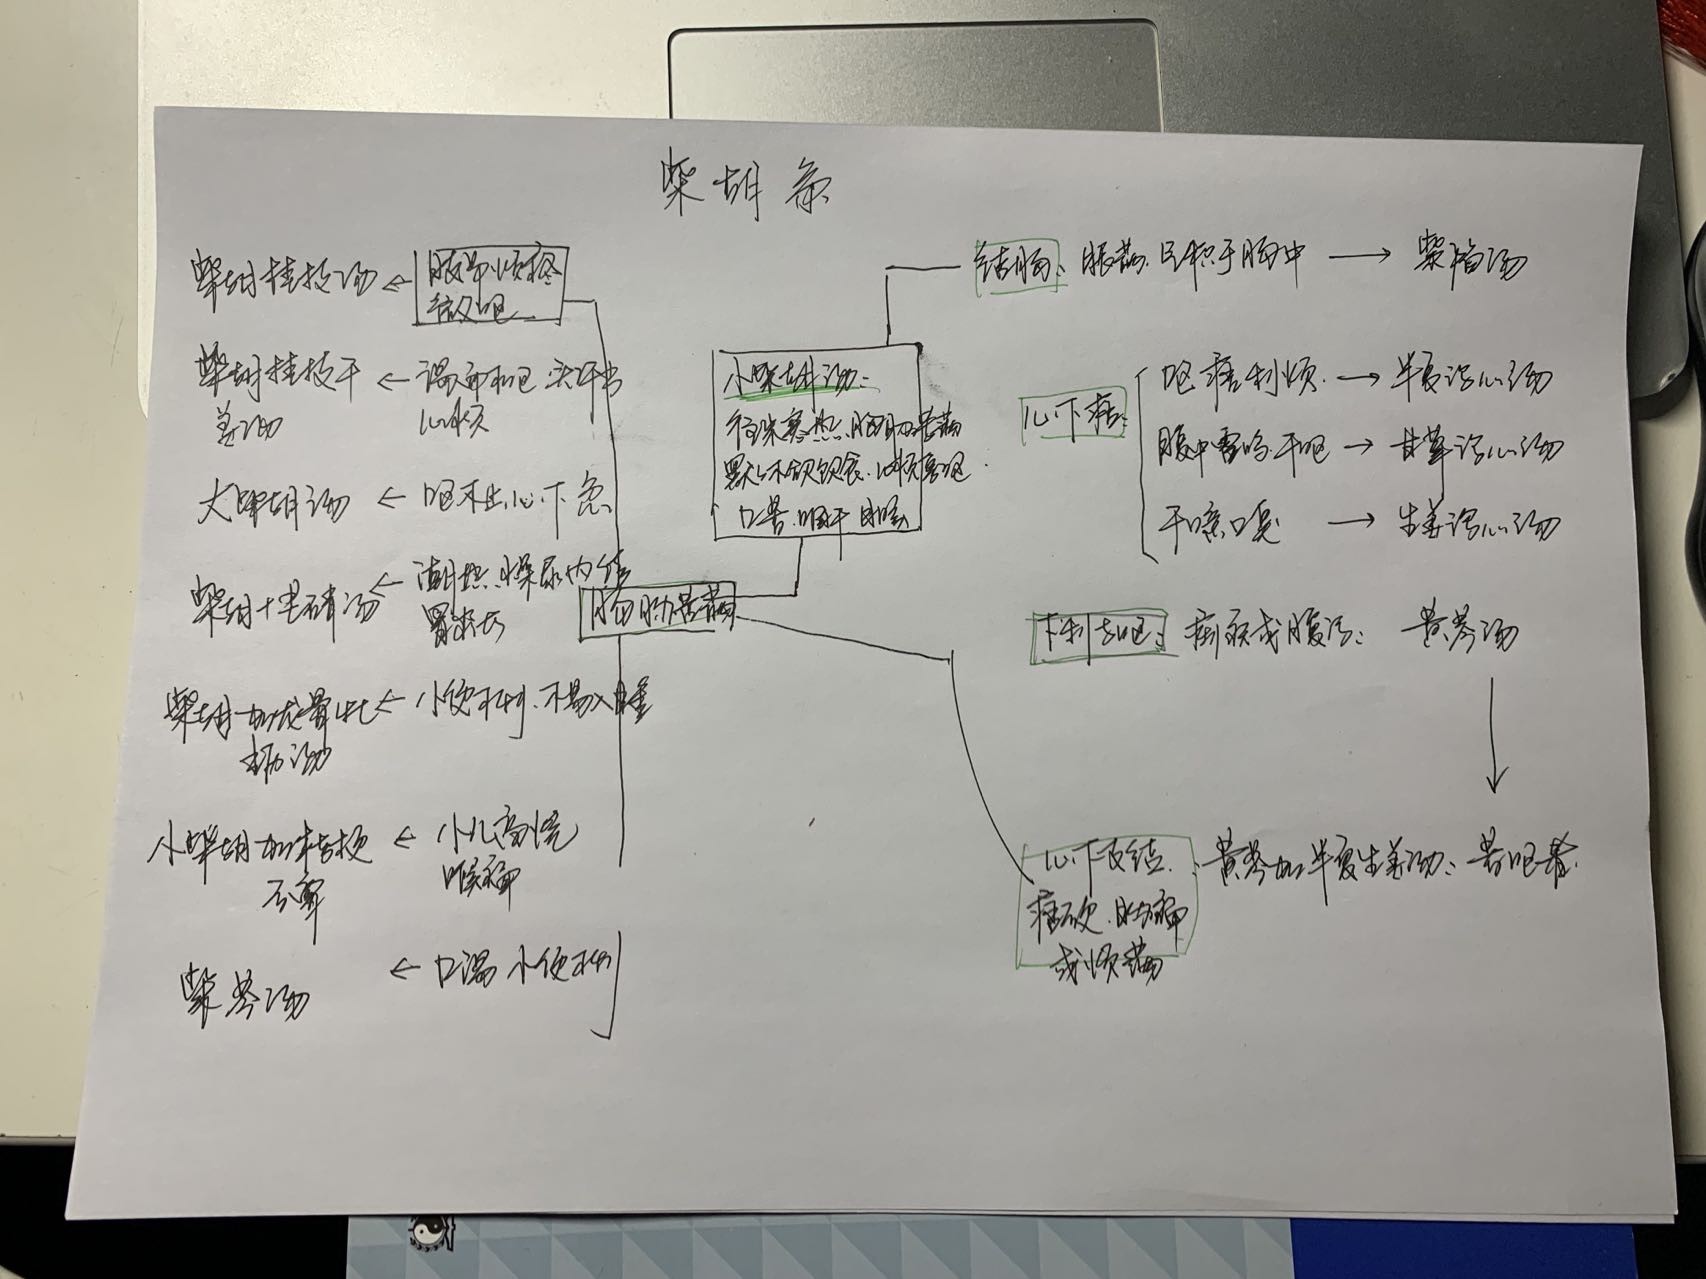 柴胡条
柴胡桂枝汤 ←
微呕
柴胡桂枝干 ← 渴而不呕 头汗出
姜汤 心烦
大柴胡汤 ← 呕不止心下急
柴胡+芒硝汤 ← 潮热.燥屎内结
柴胡加龙骨牡 ← 小便不利.不易入睡
蛎汤
小柴胡加桔梗 ← 小儿高烧
石膏 喉痛
柴苓汤 ← 口渴 小便不利
小柴胡汤:
往来寒热.胸胁苦满
默默不欲饮食.心烦喜呕.
口苦.咽干 目眩
胸胁苦满
结胸: 胀满.只积于胸中 → 柴陷汤
心下痞: 呕痞利烦. → 半夏泻心汤
腹中雷鸣.干呕 → 甘草泻心汤
干噫口臭 → 生姜泻心汤
下利去呕: 黄芩汤
心下支结. 黄芩加半夏生姜汤:
痞硬.
或烦满